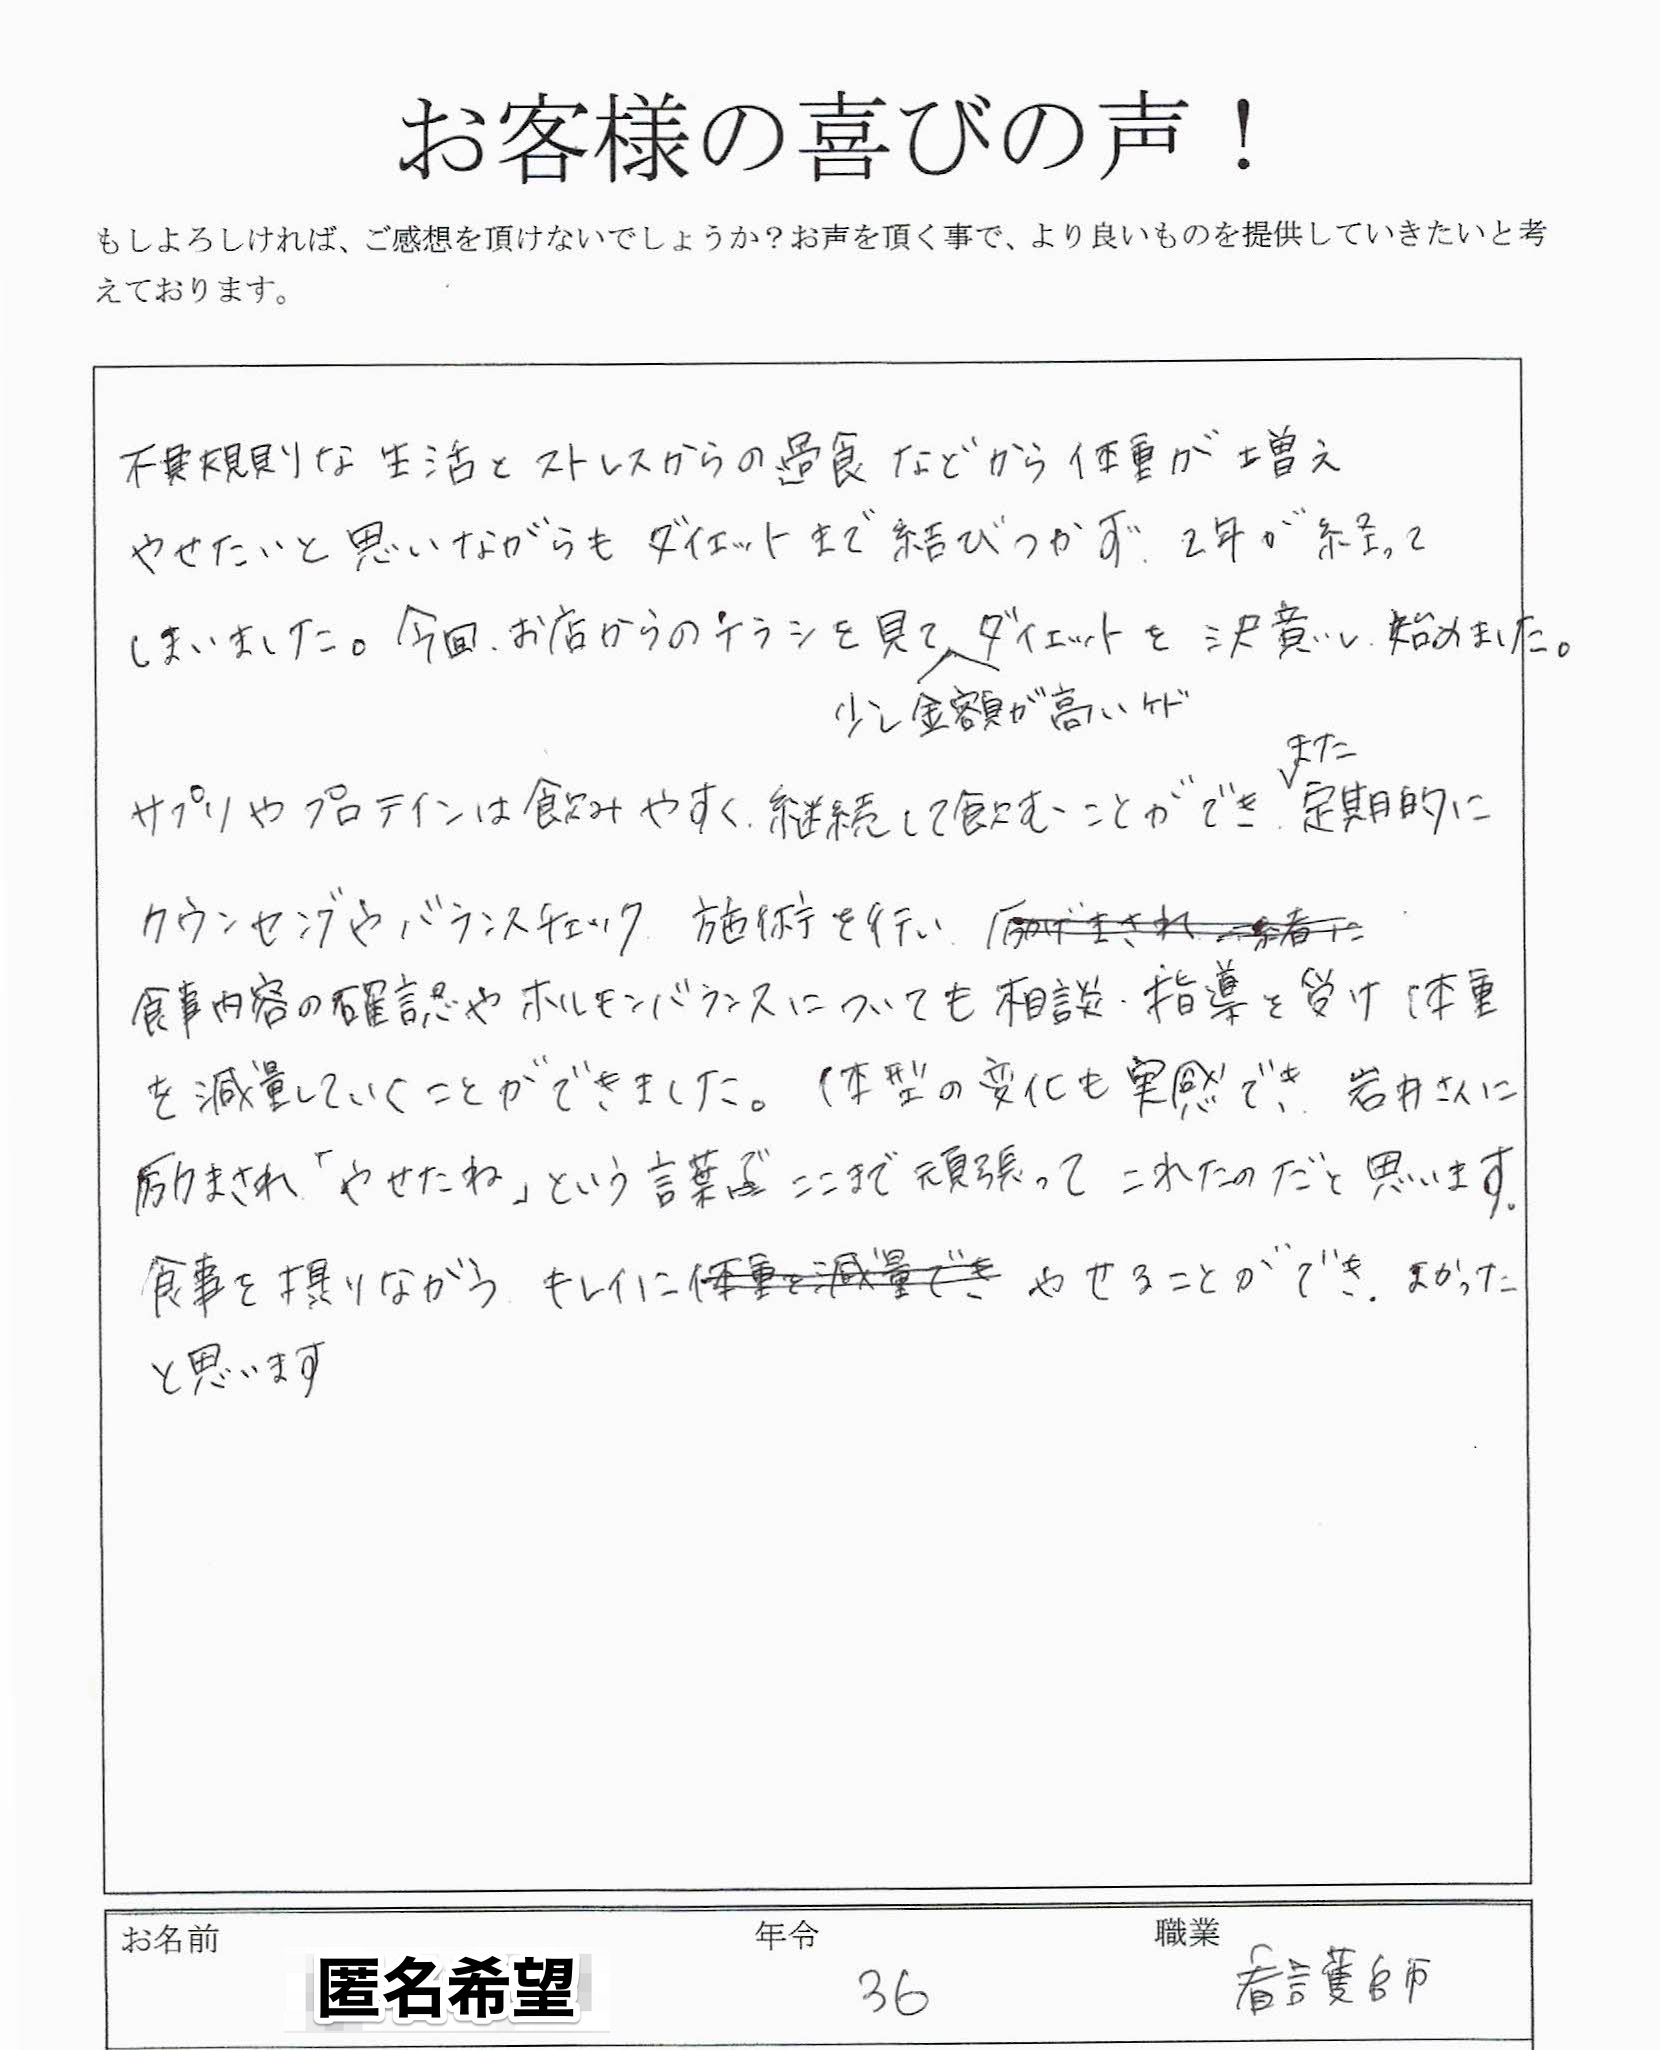 お客様の喜びの声！
もしよろしければ、ご感想を頂けないでしょうか？お声を頂く事で、より良いものを提供していきたいと考
えております。
不規則な生活とストレスからの過食などから体重が増え
やせたいと思いながらもダイエットまで結びつかず、2年が経って
しまいました。今回、お店からのチラシを見てダイエットを決意し、始めました。
少し金額が高いケド
また
サプリやプロテインは飲みやすく、継続して飲むことができ、定期的に
カウンセングやバランスチェック、施術を行い、
食事内容の確認やホルモンバランスについても相談・指導を受け体重
を減量していくことができました。体型の変化も実感でき、岩井さんに
励まされ、「やせたね」という言葉でここまで頑張ってこれたのだと思います。
食事を摂りながら、キレイに体重を減量でき やせることができ、よかった
と思います
お名前 年令 職業
匿名希望 36 看護師